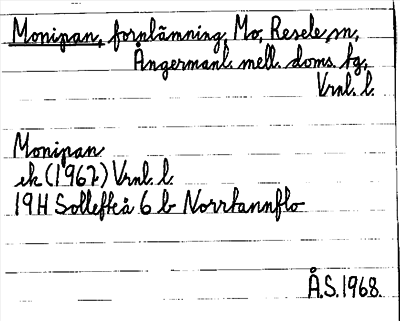 Monipan, fornlämning, Mo, Resele, sn,
Ångermanl. mell. doms. fg,
Vrnl. l.
Monipan
ek (1967) Vrnl. l.
19H Sollefteå 6 b Norrtannflo
Å.S.1968.